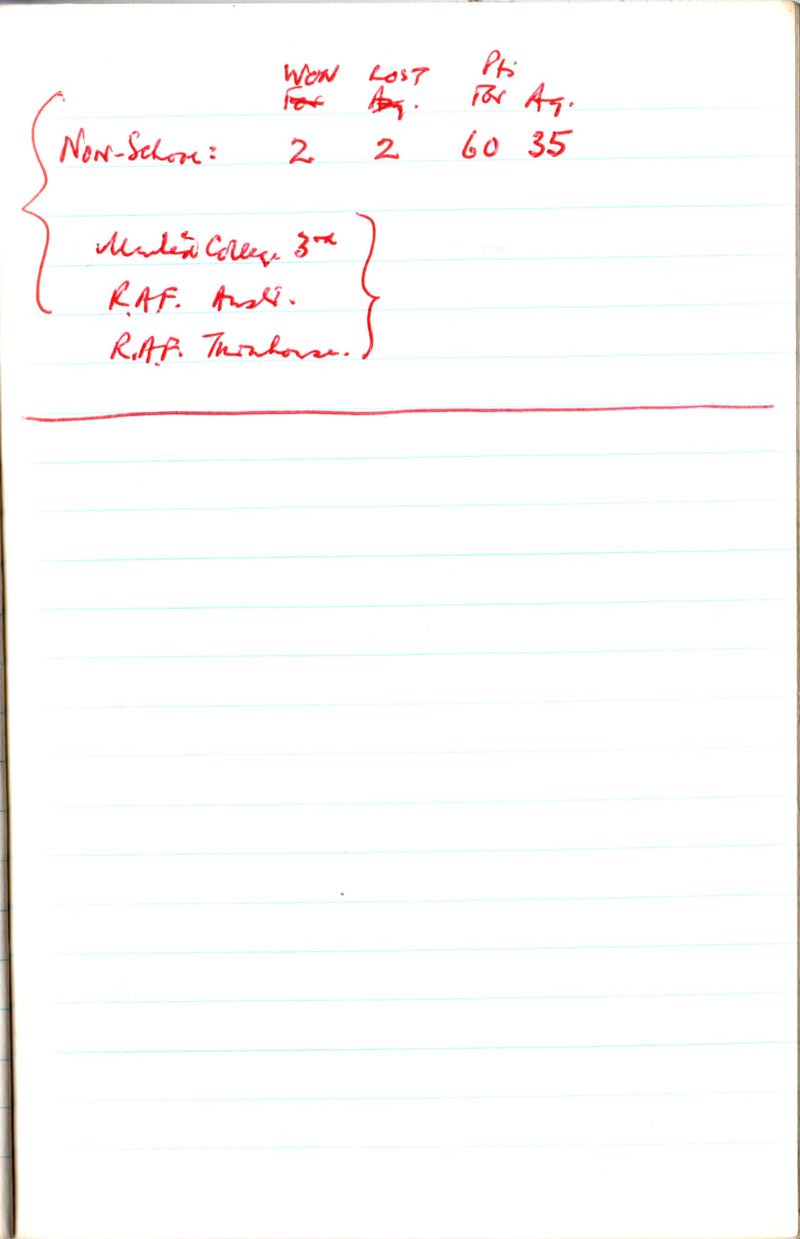 WON LOST Pts
For Ag. For Ag.
Non-School: 2 2 60 35
College 3rd
R.A.F.
R.A.F.